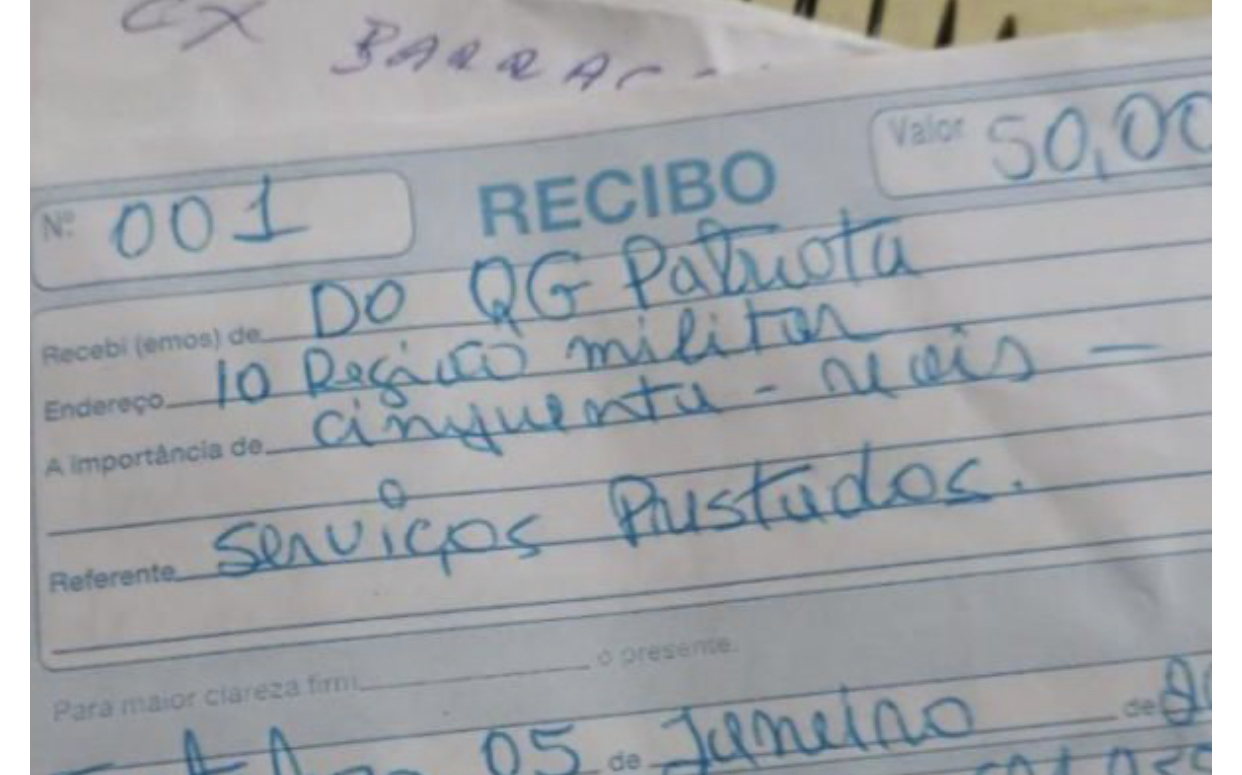 CX
Nº 001 RECIBO Valor 50,00
Recebi (emos) de DO QG Patriota
Endereço 10 Região militar
A importância de cinquenta - reais -
Referente serviços Prestados.
Para maior clareza firm o presente.
05 de Janeiro de